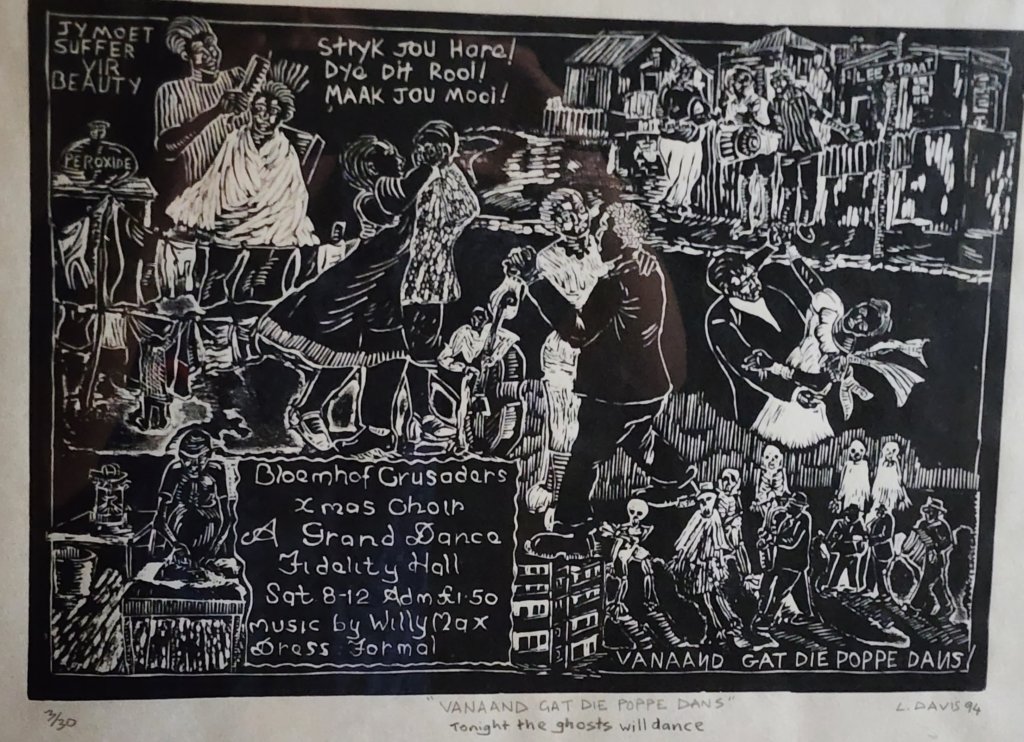 JY MOET
SUFFER
VIR
BEAUTY
Stryk Jou Hare!
Dye Dit Rooi!
MAAK JOU MOOI!
LEE STRAAT
PEROXIDE
Bloemhof Crusaders
Xmas Choir
A Grand Dance
Fidelity Hall
Sat 8-12 Adm £1.50
music by Willy Max
Dress Formal
VANAAND GAT DIE POPPE DANS!
3/30
"VANAAND GAT DIE POPPE DANS"
Tonight the ghosts will dance
L. DAVIS 94